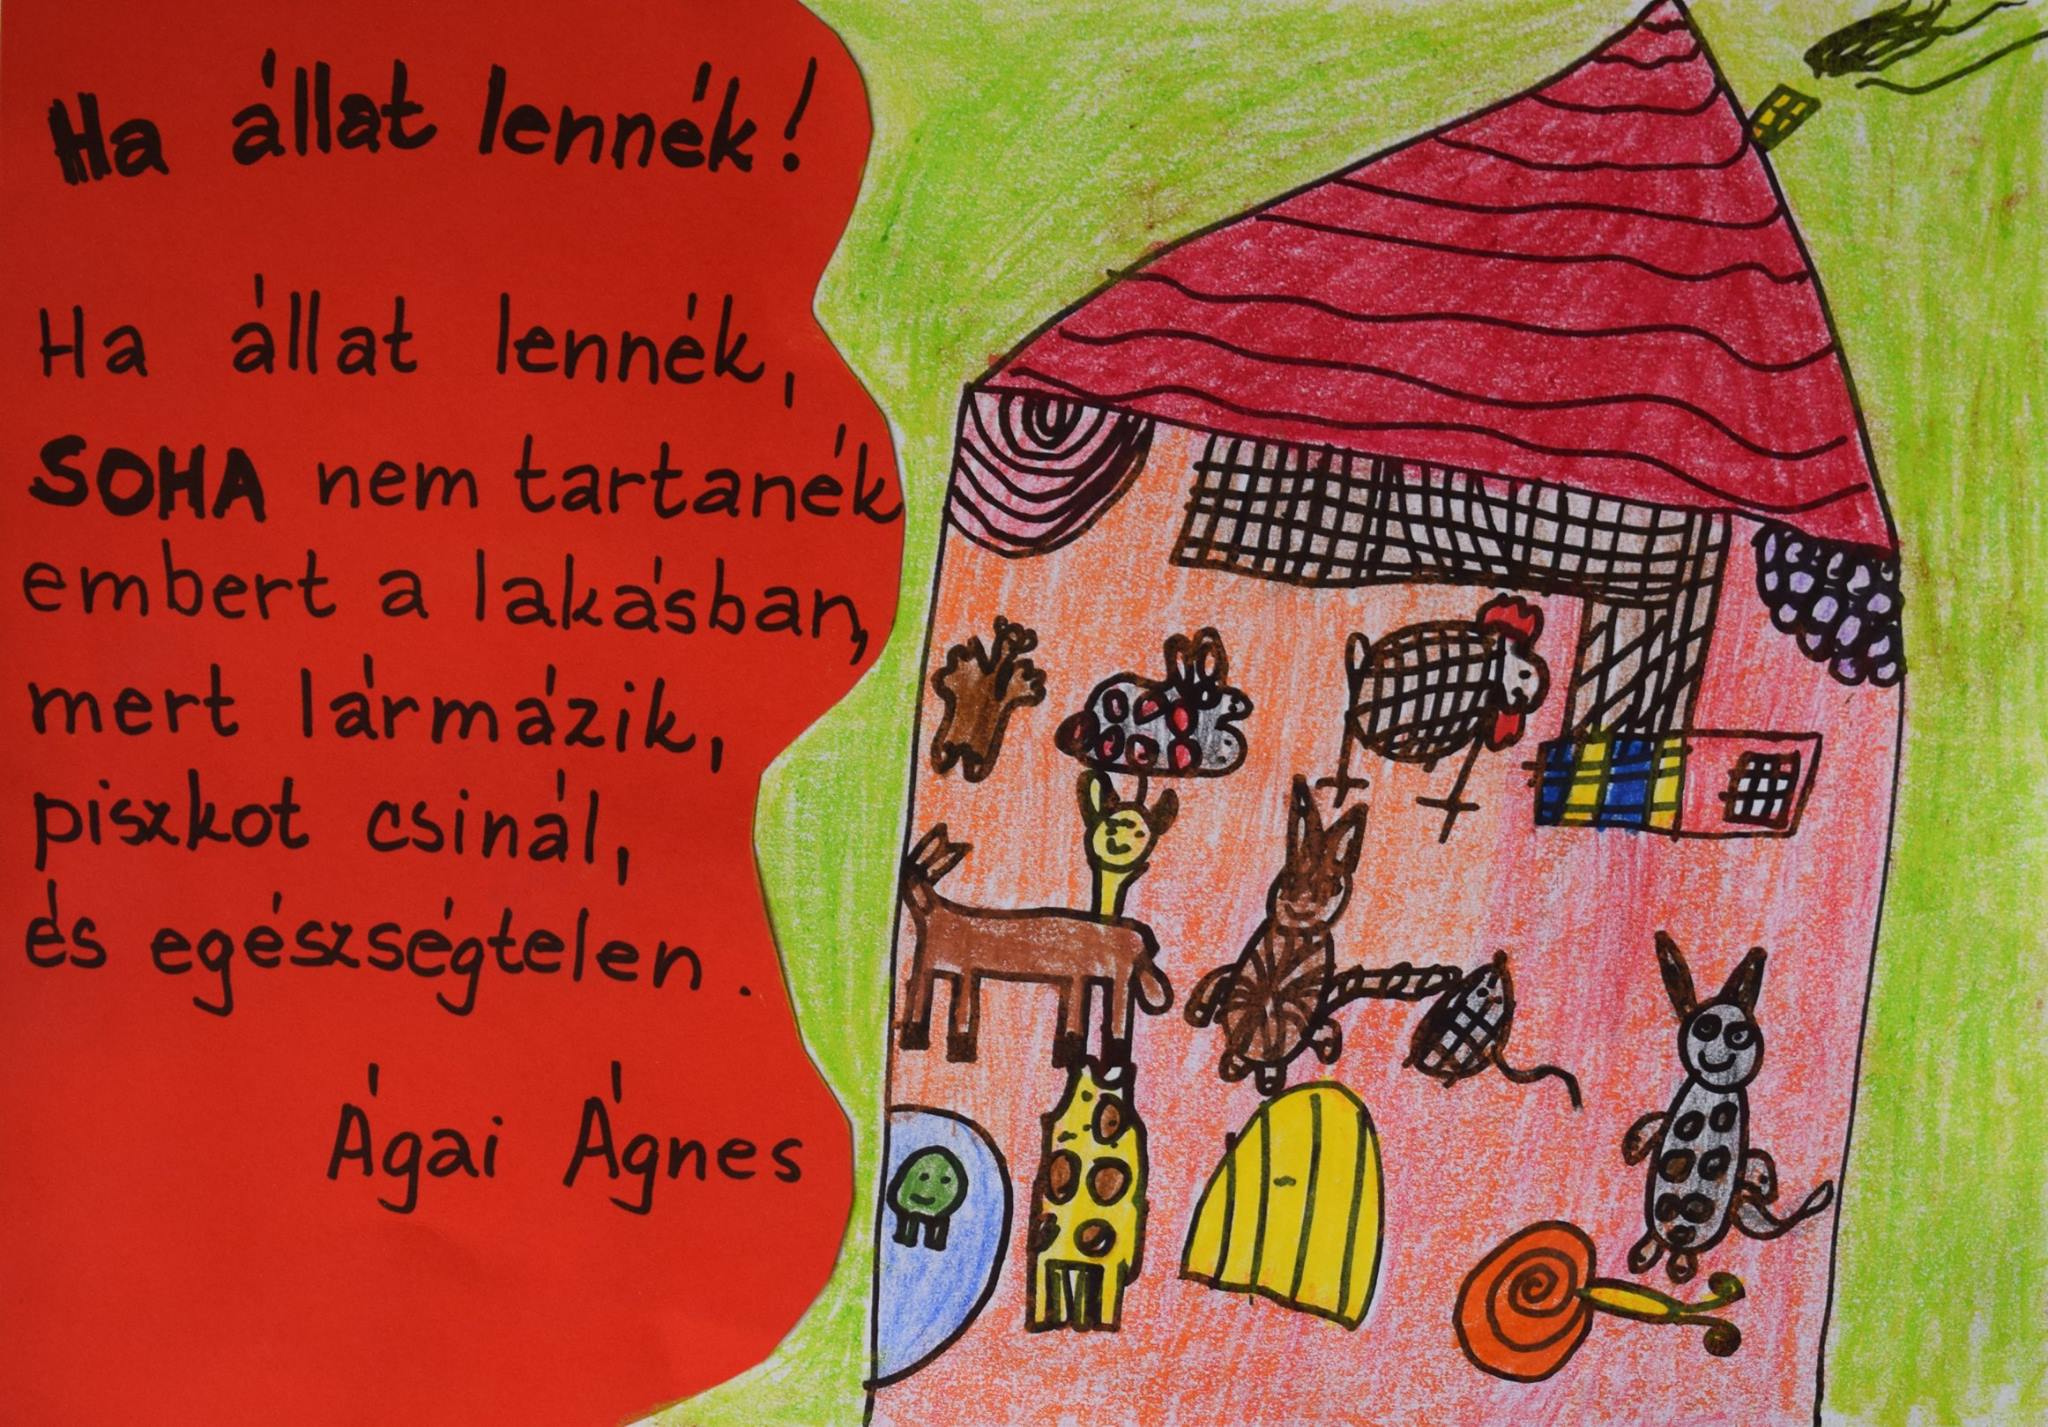 Ha állat lennék!
Ha állat lennék,
SOHA nem tartanék
embert a lakásban,
mert lármázik,
piszkot csinál,
és egészségtelen.
Ágai Ágnes